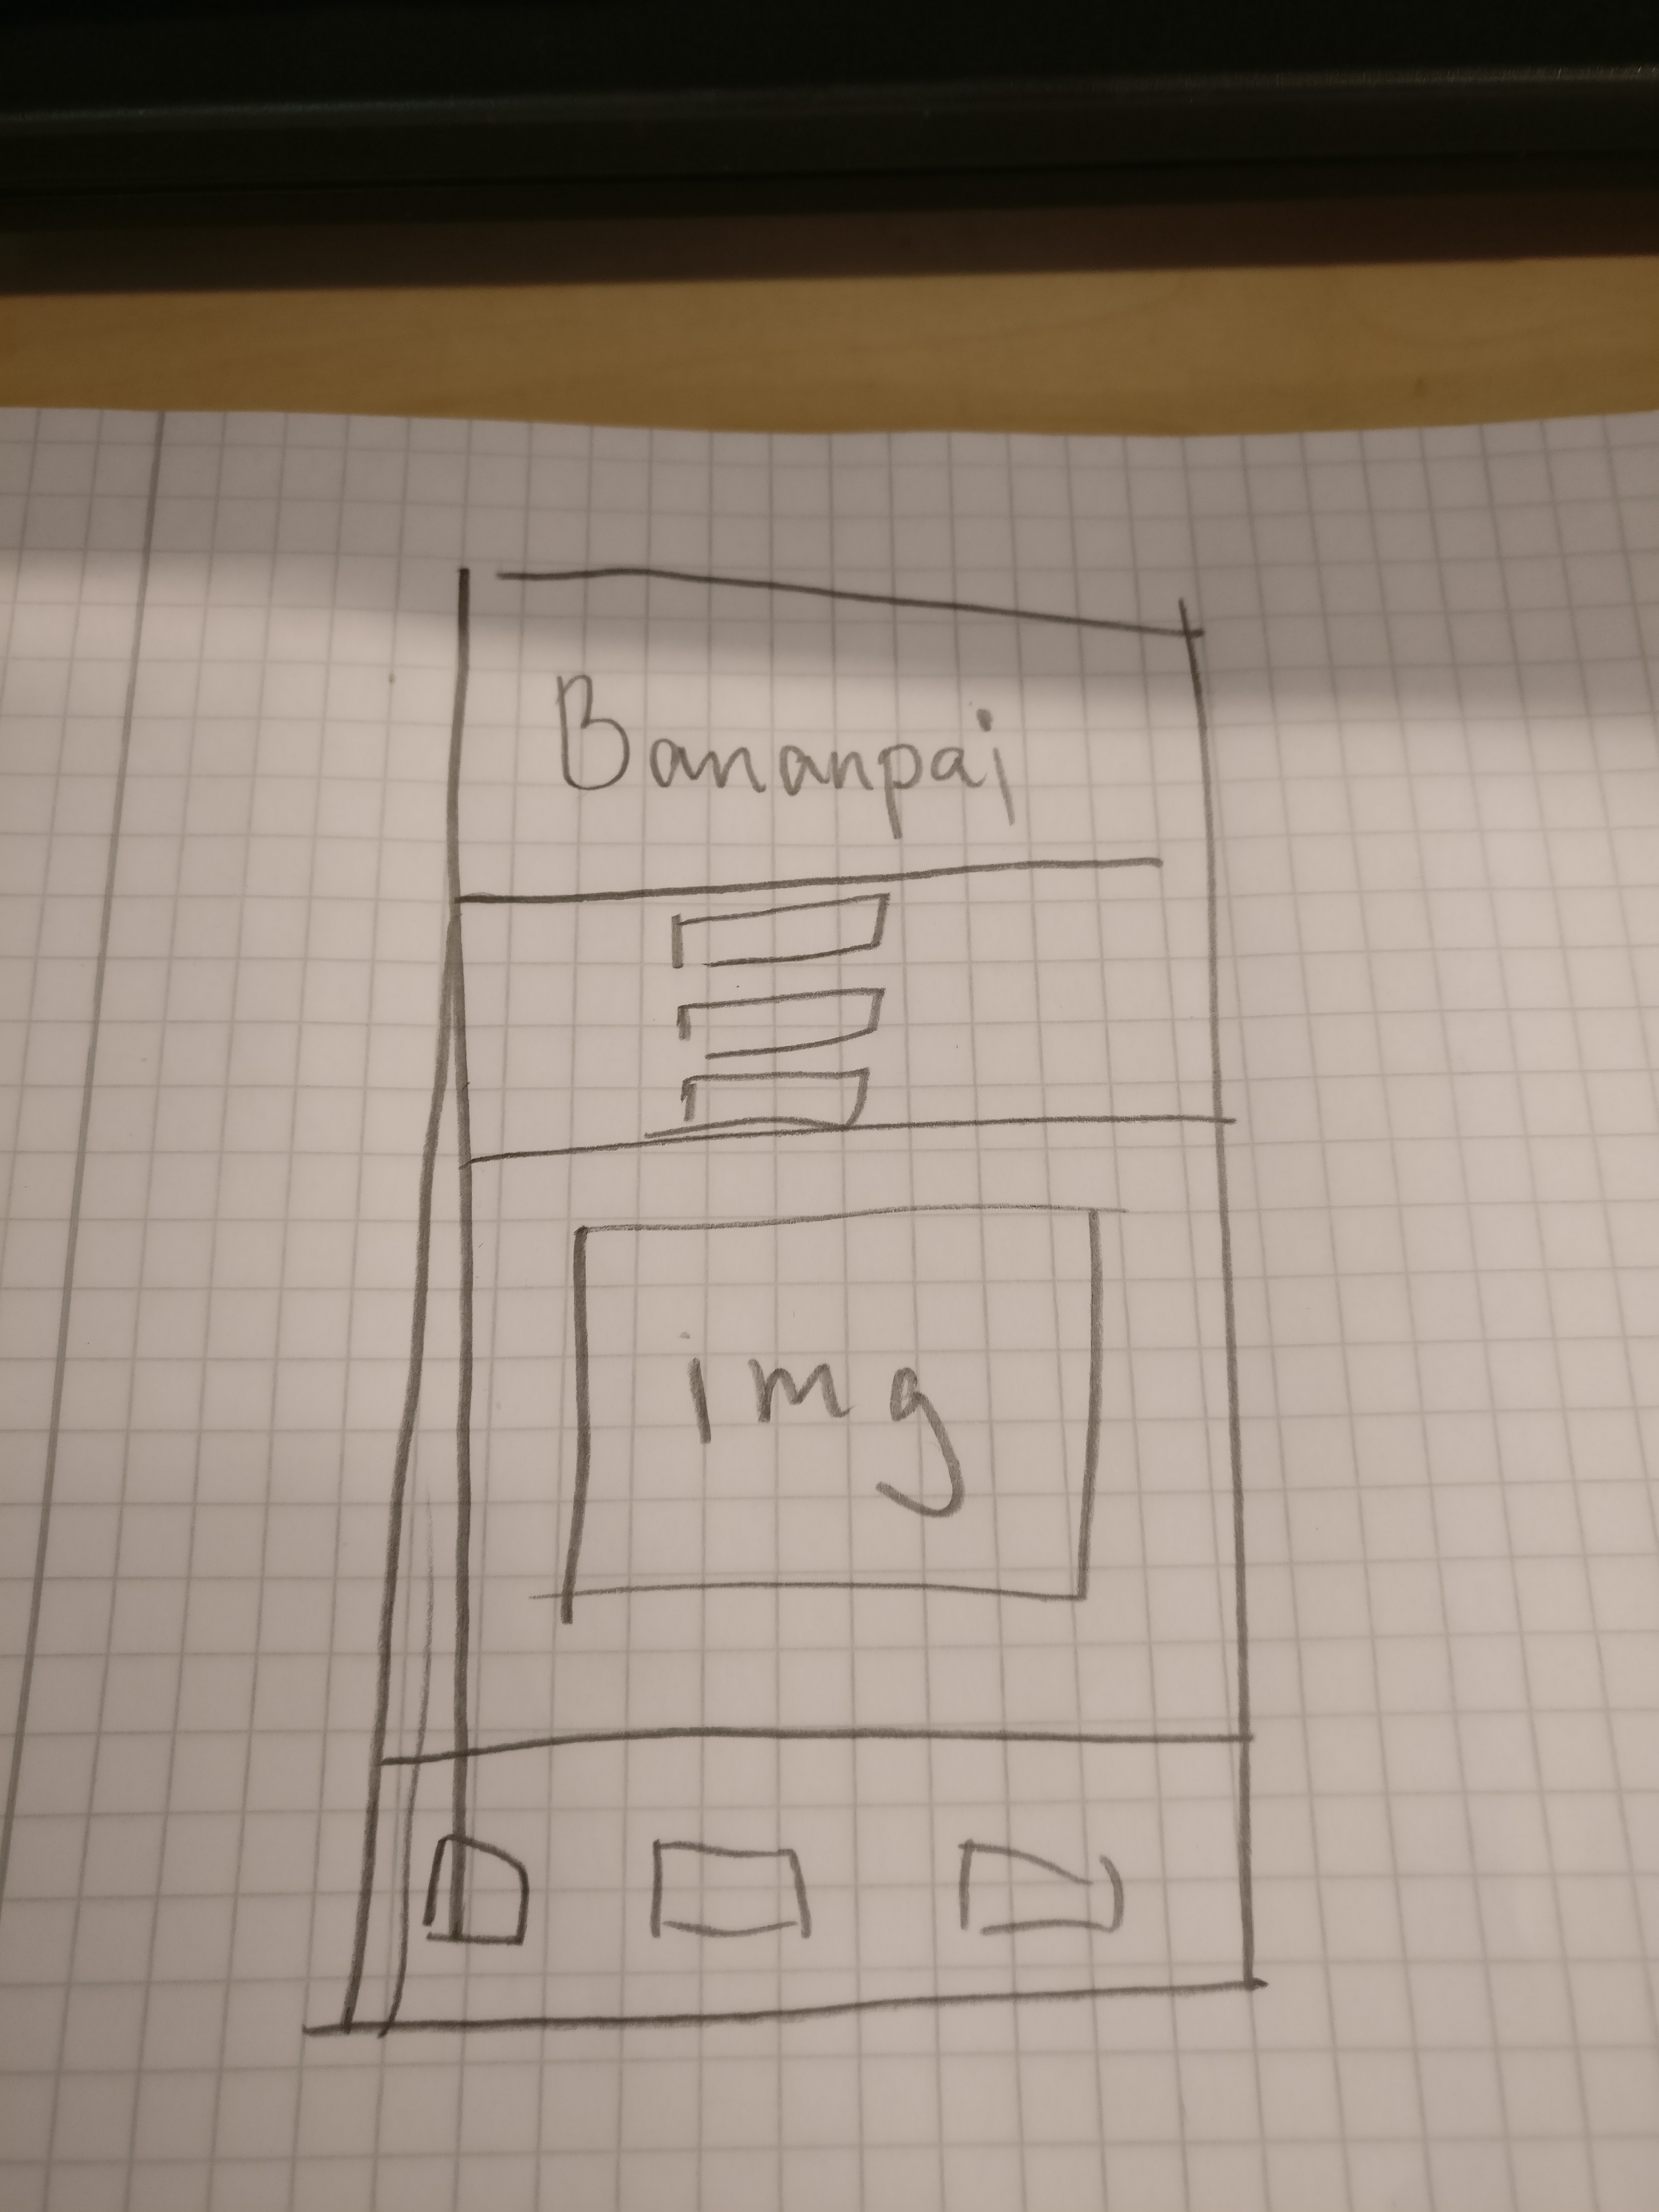 Bananpaj
img